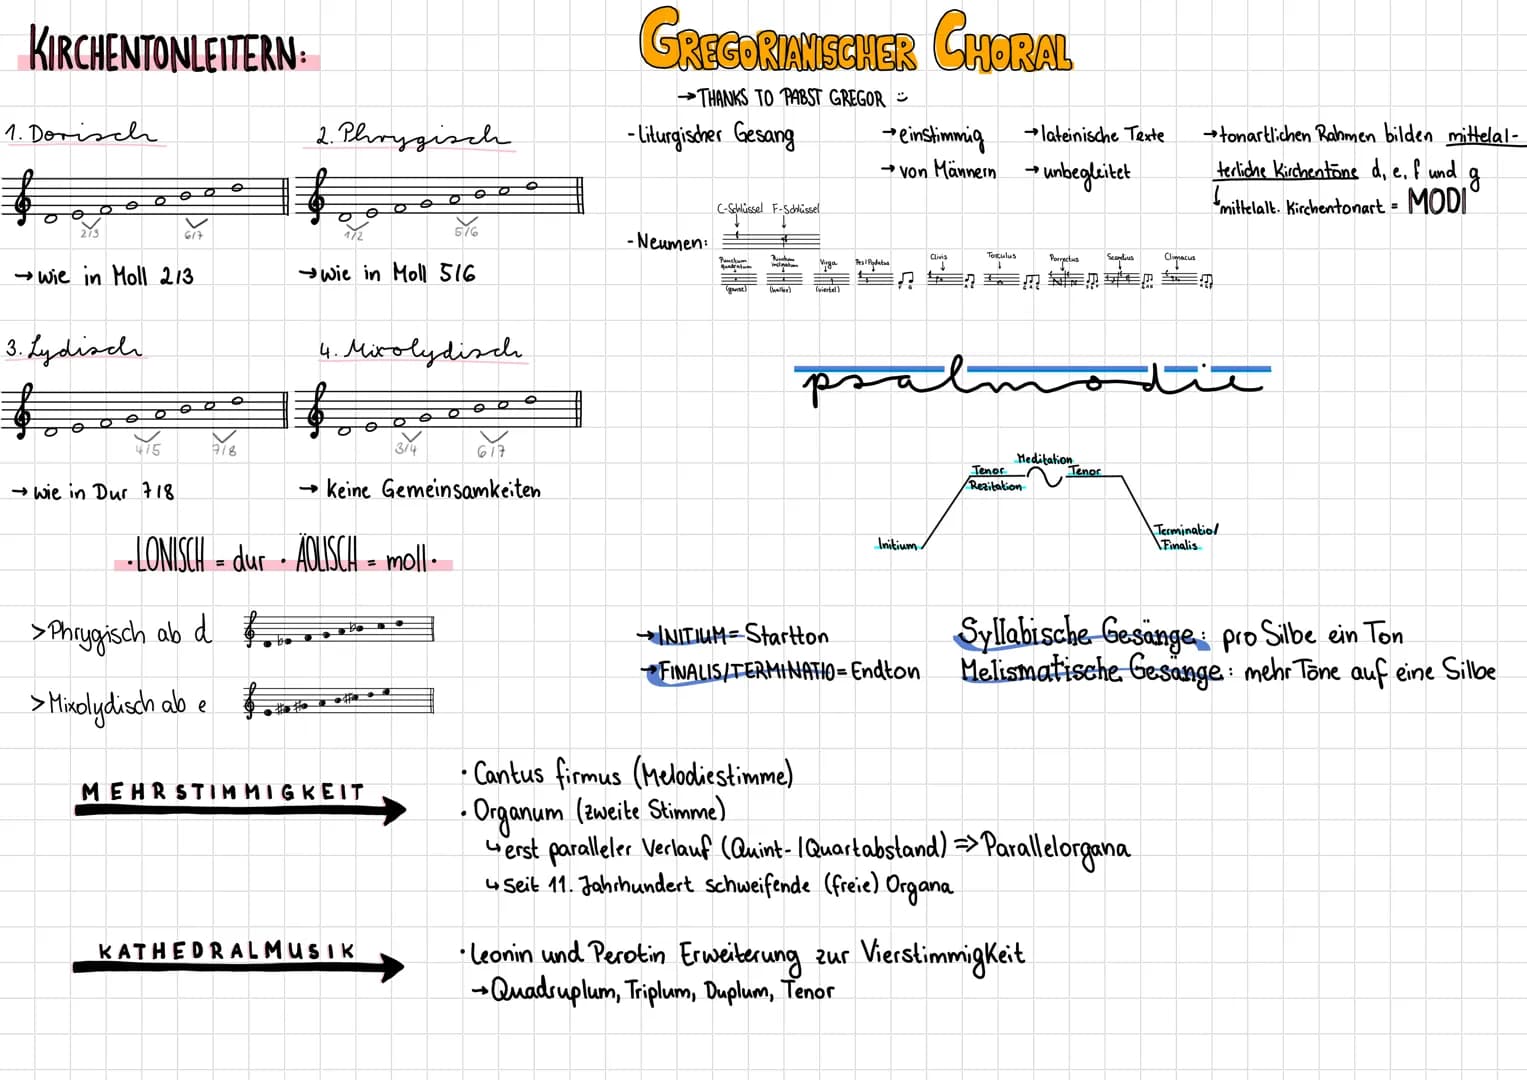 KIRCHENTONLEITERN:
1. Dorisch
2. Phrygisch
2/3
6/7
1/2
5/6
→ wie in Moll 2/3
→ wie in Moll 5/6
3. Lydisch
4. Mixolydisch
4/5
7/8
3/4
6/7
→ wie in Dur 7/8
→ Keine Gemeinsamkeiten
· LONISCH = dur · ÄOLISCH = moll ·
> Phrygisch ab d
> Mixolydisch ab e
GREGORIANISCHER CHORAL
→ THANKS TO PABST GREGOR
- liturgischer Gesang
→ einstimmig
→ von Männern
→ lateinische Texte
→ unbegleitet
→ tonartlichen Rahmen bilden mittelal-
terliche Kirchentöne d, e, f und g
mittelalt. Kirchentonart = MODI
C-Schlüssel F-Schlüssel
- Neumen:
Punctum quadratum
(ganze)
Punctum inclinatum
(halbe)
Virga
(viertel)
Pes/Podatus
Clivis
Torculus
Porrectus
Scandicus
Climacus
psalmodie
Initium
Tenor
Rezitation
Meditation
Tenor
Terminatio/
Finalis
→ INITIUM = Startton
→ FINALIS/TERMINATIO = Endton
Syllabische Gesänge: pro Silbe ein Ton
Melismatische Gesänge: mehr Töne auf eine Silbe
MEHRSTIMMIGKEIT
· Cantus firmus (Melodiestimme)
· Organum (zweite Stimme)
↳ erst paralleler Verlauf (Quint-/Quartabstand) => Parallelorgana
↳ seit 11. Jahrhundert schweifende (freie) Organa
KATHEDRALMUSIK
· Leonin und Perotin Erweiterung zur Vierstimmigkeit
→ Quadruplum, Triplum, Duplum, Tenor